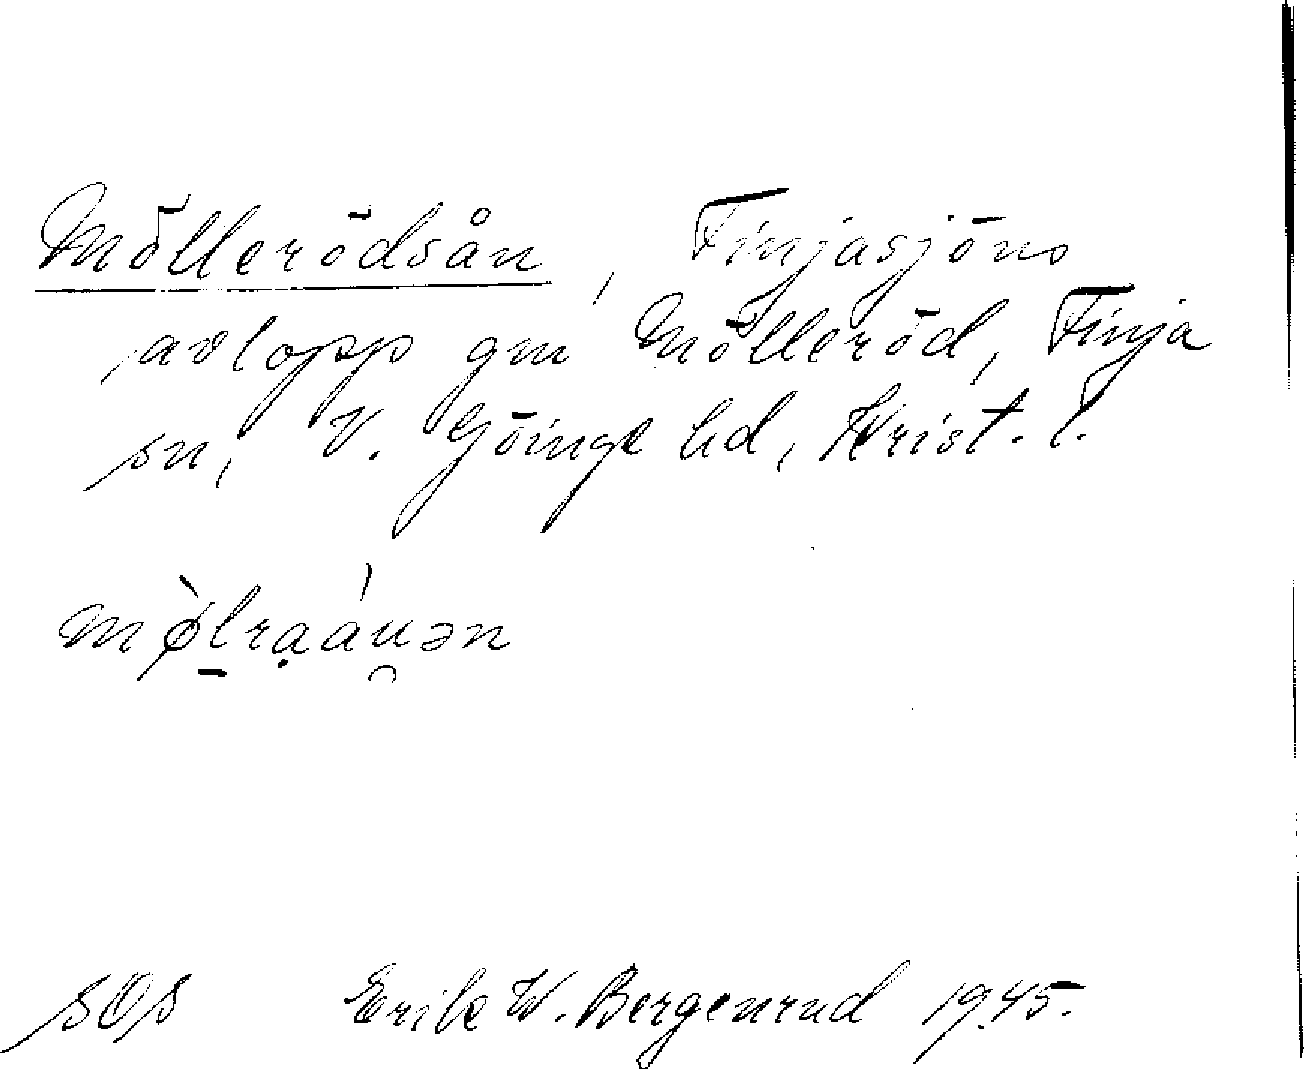 Möllerödsån, Finjasjöns
avlopp gm Mölleröd, Finja
sn, V. Göinge hd, Krist. l.
mø̀l̠rạáu̯ən
SOS Erik W. Bergenrud 1945.